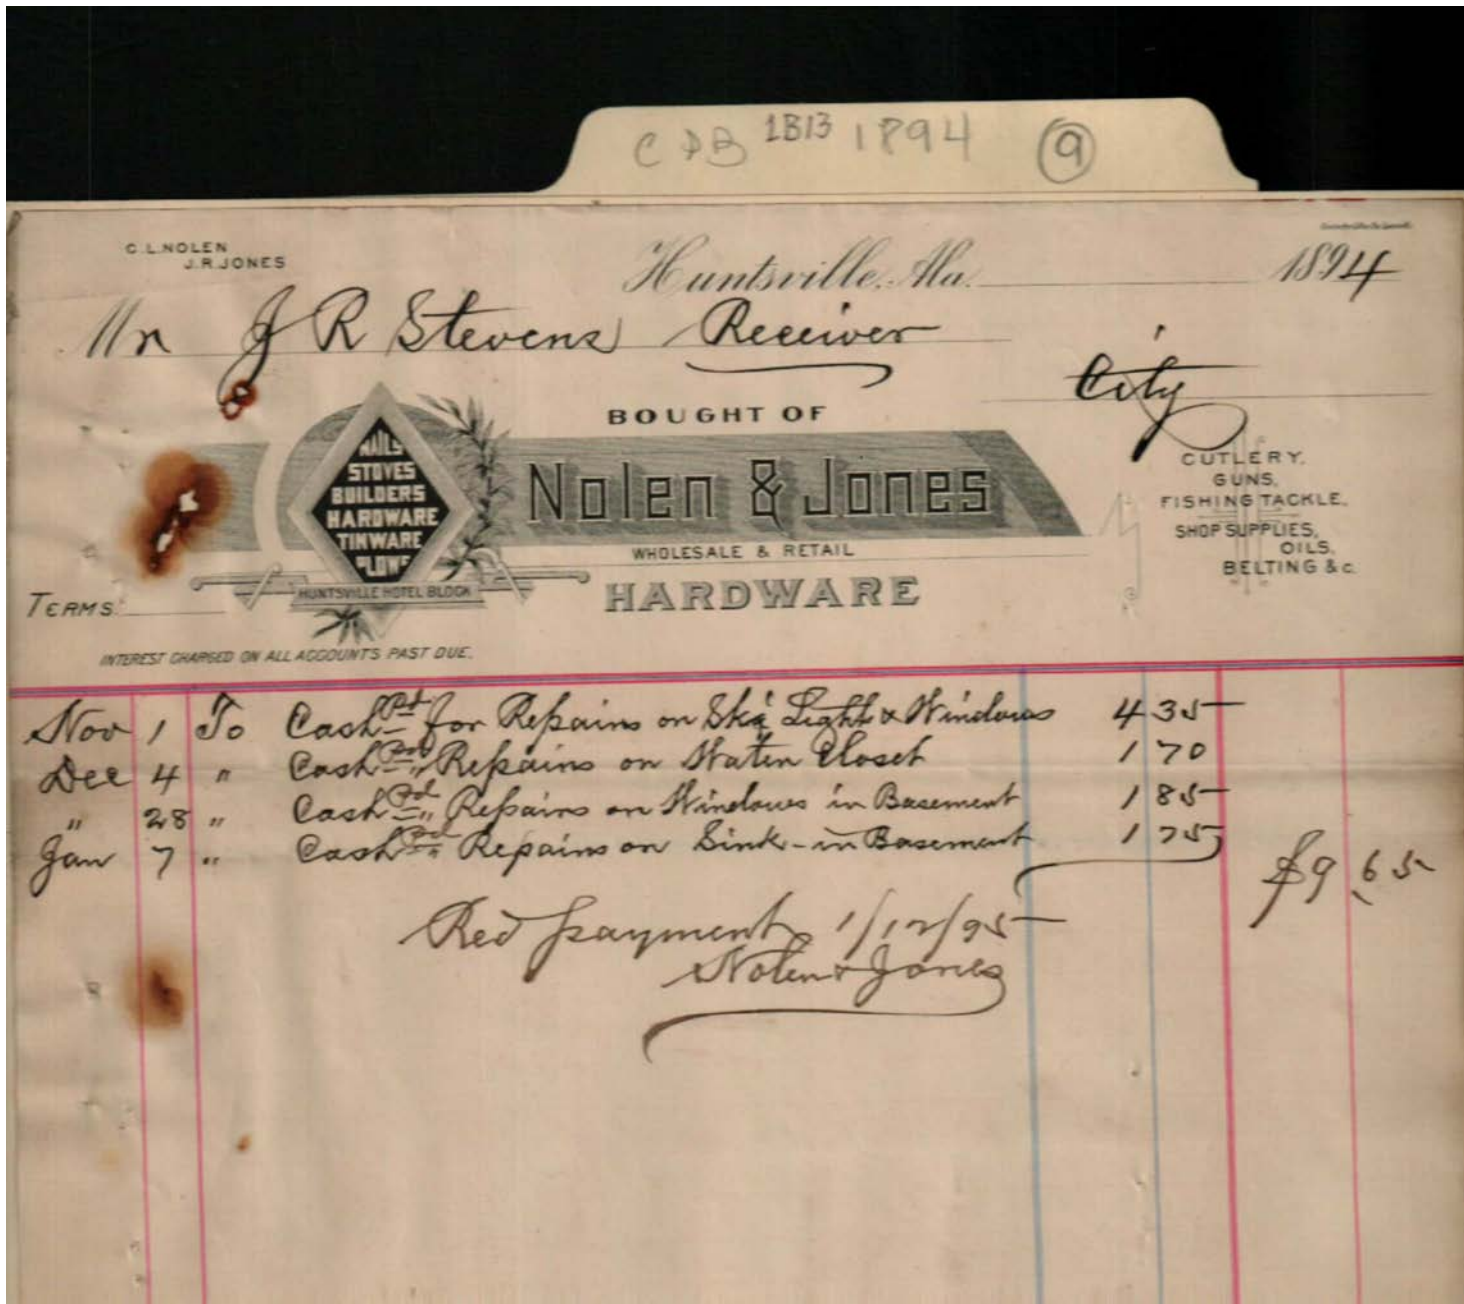 C D B 1B13 1894 9
C. L. NOLEN
J. R. JONES
Huntsville, Ala. 1894
Mr J R Stevens Receiver
City
BOUGHT OF
NAILS
STOVES
BUILDERS
HARDWARE
TINWARE
PLOWS
HUNTSVILLE HOTEL BLOCK
Nolen & Jones
WHOLESALE & RETAIL
HARDWARE
CUTLERY,
GUNS,
FISHING TACKLE,
SHOP SUPPLIES,
OILS,
BELTING &c.
TERMS
INTEREST CHARGED ON ALL ACCOUNTS PAST DUE.
Nov 1 To Cash Pd for Repairs on Sky Light & Windows 4 35
Dec 4 " Cash Pd " Repairs on Water Closet 1 70
" 28 " Cash Pd " Repairs on Windows in Basement 1 85
Jan 7 " Cash Pd " Repairs on Sink in Basement 1 75
$9 65
Recd payment 1/12/95
Nolen & Jones